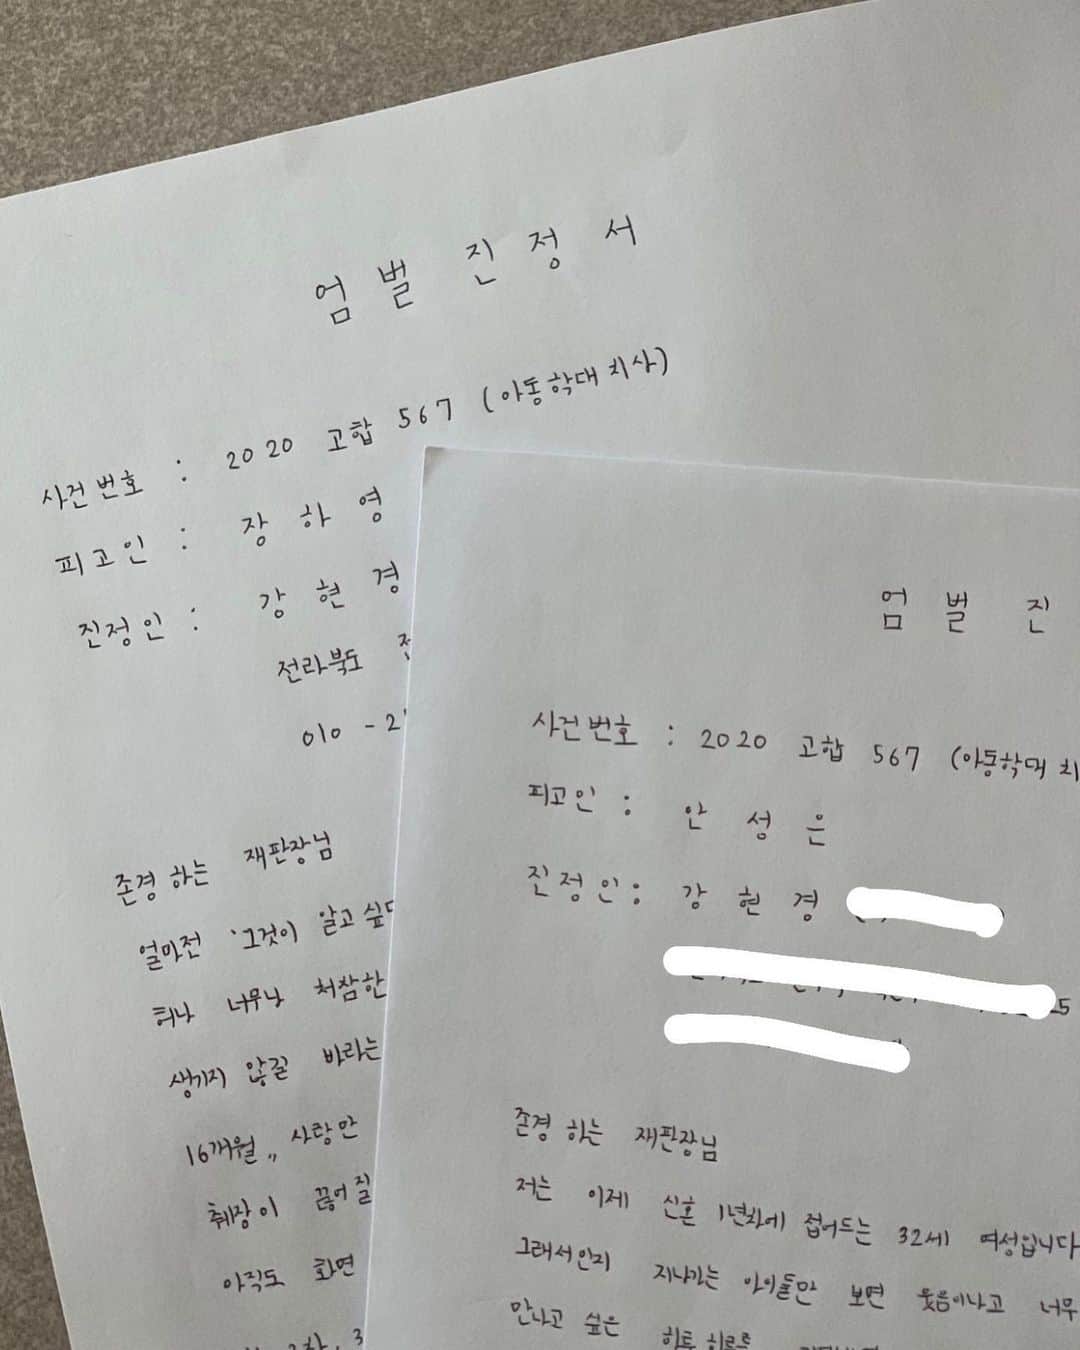 엄벌 진정서
사건번호 : 2020 고합 567 (아동학대치사)
피고인 : 장하영
진정인 : 강현경
전라북도
010 - 2
존경하는 재판장님
얼마전 '그것이 알고 싶
너무나 처참한
생기지 않길 바라는
16개월,, 사랑만
췌장이 끊어질
아직도 화면
엄벌 진
사건번호 : 2020 고합 567 (아동학대 치
피고인 : 안성은
진정인 : 강현경
존경하는 재판장님
저는 이제 신혼 1년차에 접어드는 32세 여성입니다
그래서인지 지나가는 아이들만 보면 웃음이나고 너무
만나고 싶은